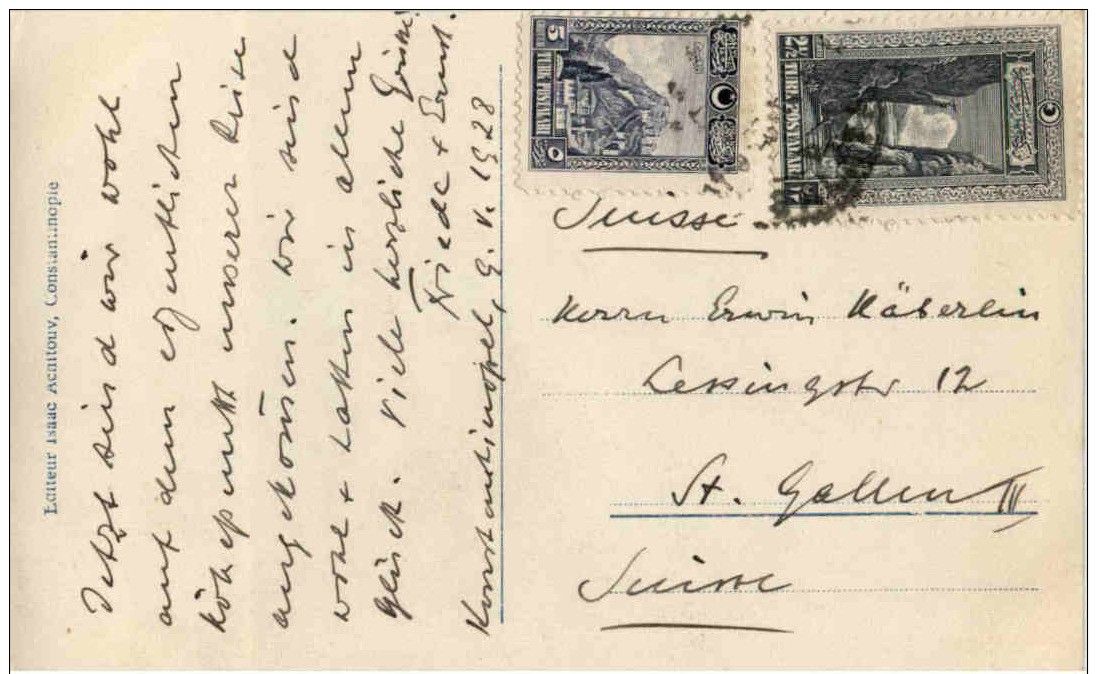 Editeur Isaac Acnitouv, Constantinople
Jetzt sind wir wohl
auf dem eigentlichen
Höhepunkt unserer Reise
angekom̄en. Wir sind
wohl + haben in allem
Glück. Viele herzliche Grüsse
Friede + Ernst.
Konstantinopel, 9. V. 1928
5 TURK POSTALARI
2½ TURK POSTALARI 2½
Suisse.
Herrn Erwin Häberlin
Lessingstr 12
St. Gallen III
Suisse